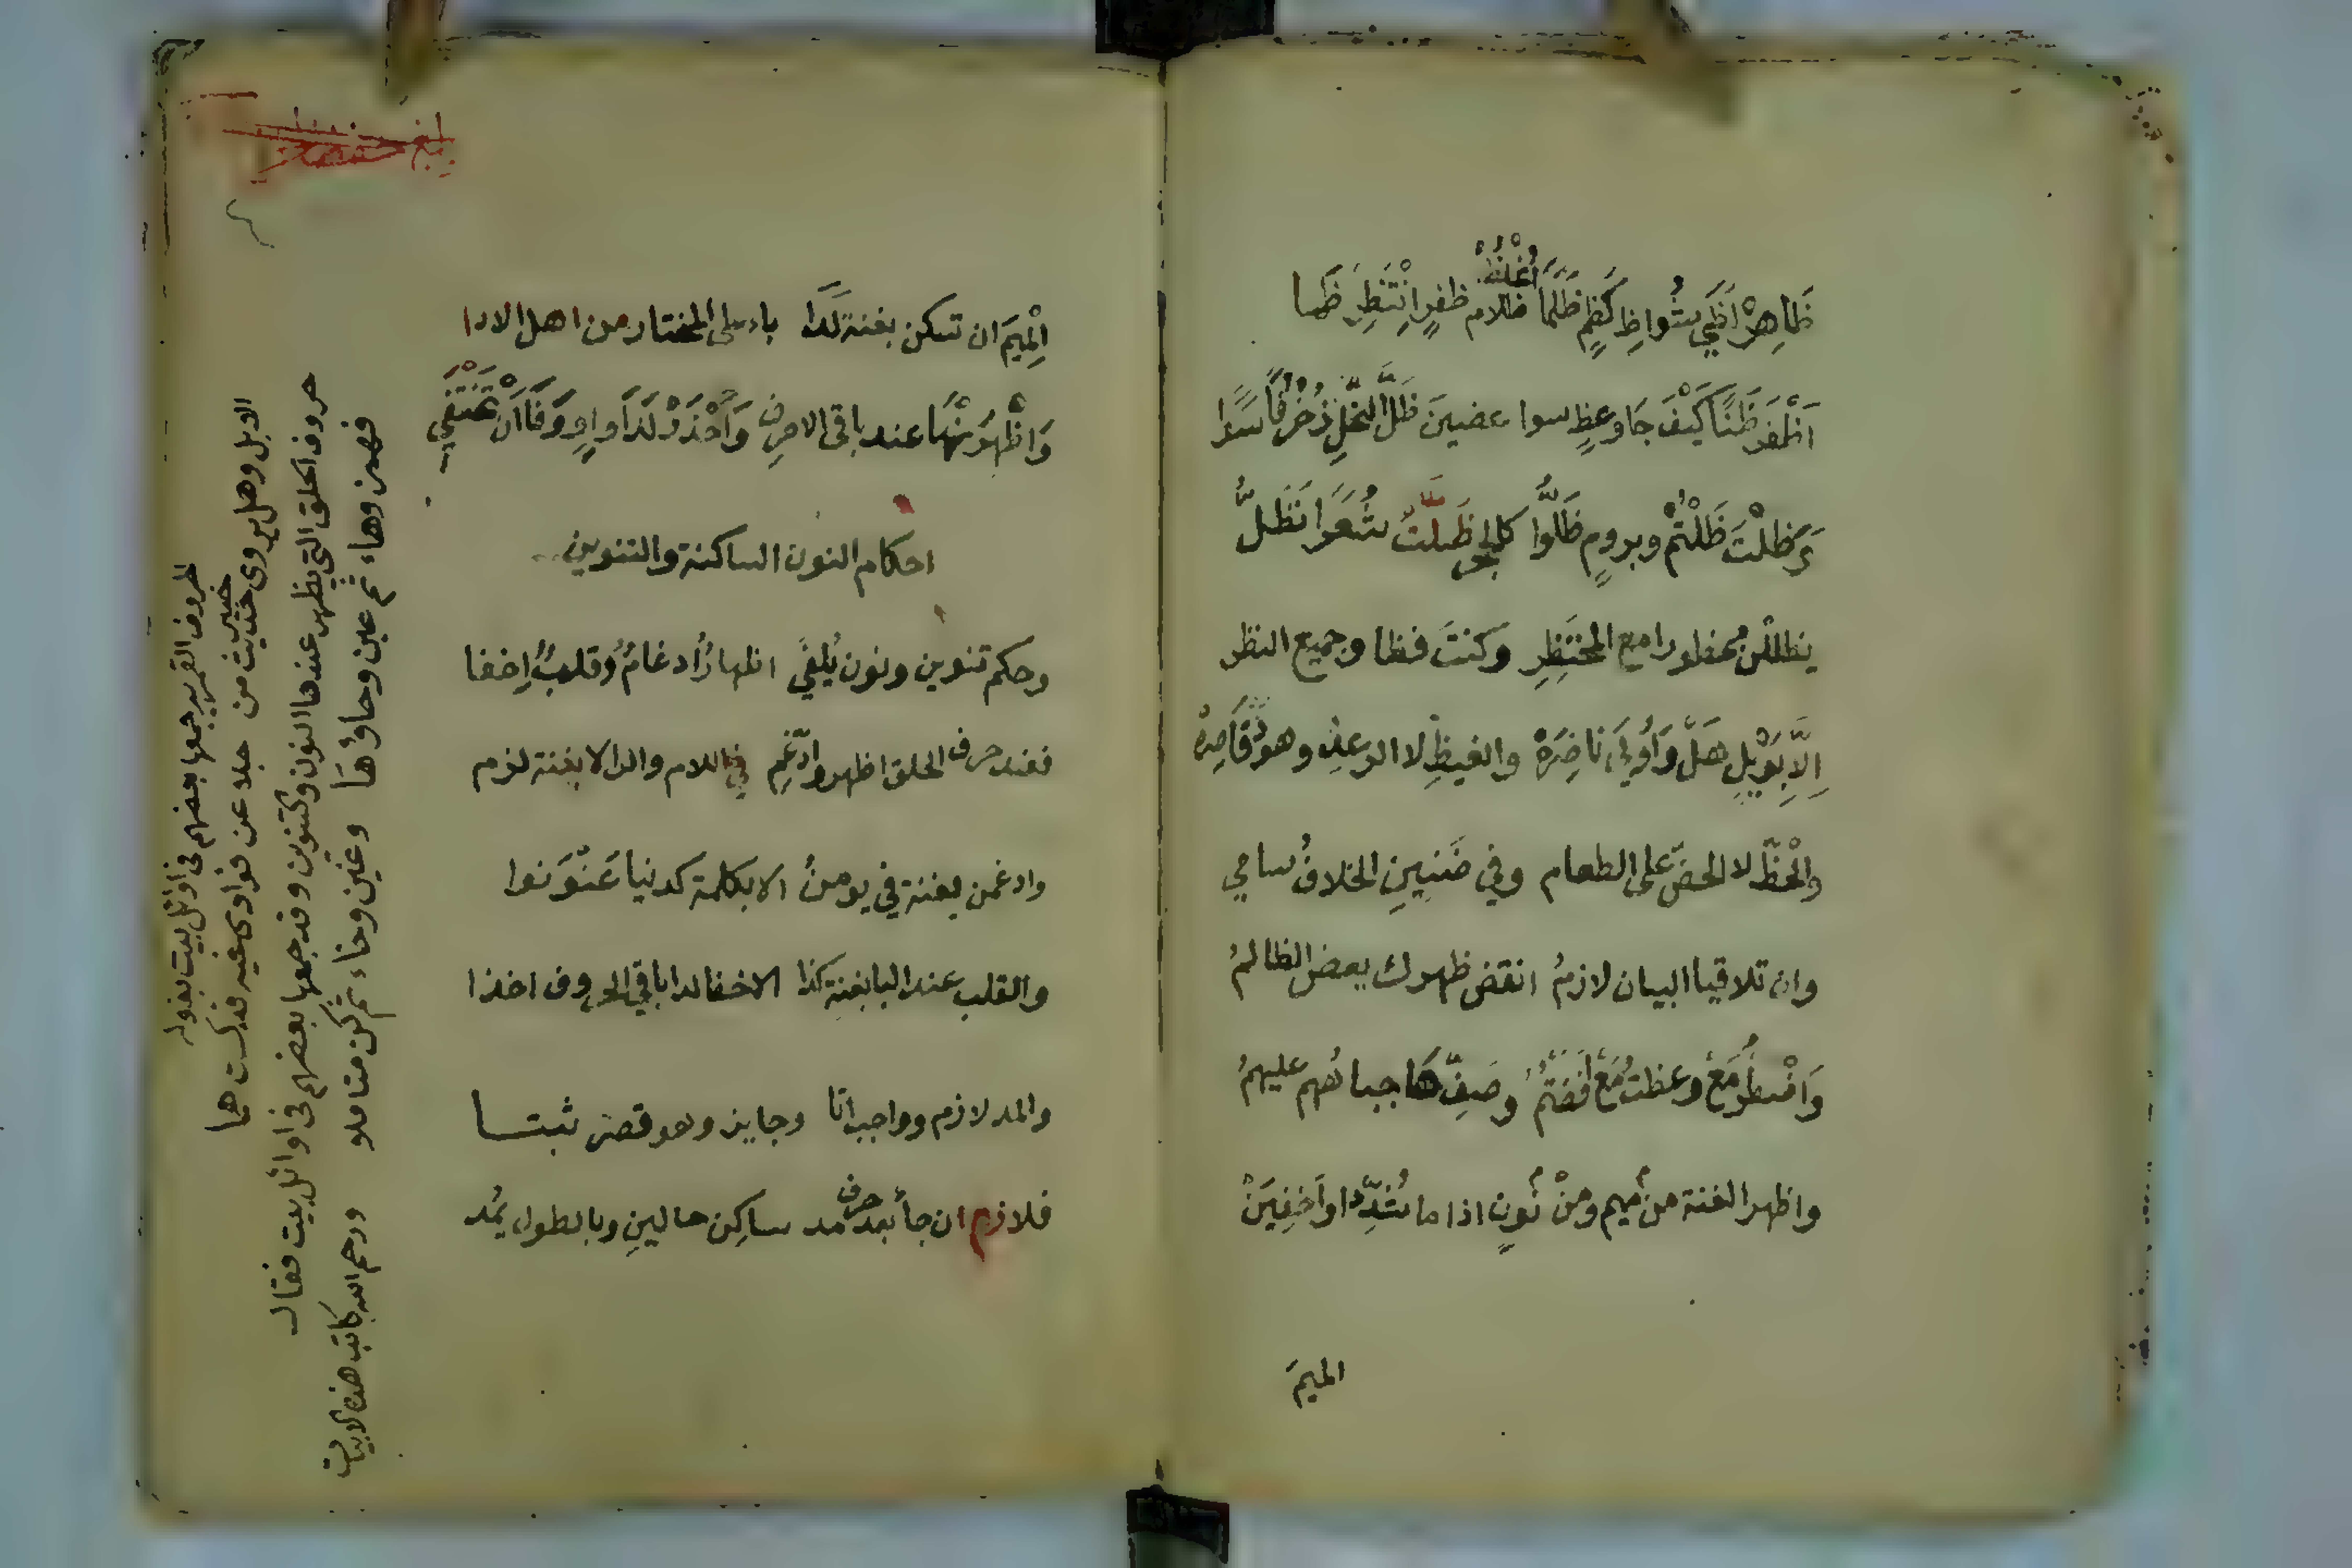 ظَاهِرْ لَظَى شُوَاظِ كَظْمٍ ظَلَمَا اُغْلُظْ ظَلامِ ظفرٍ اِنْتَظِرْ ظَمَا
اَظْفَرَ ظَنًّا كَيْفَ جَا وعظٍ سوا عضينَ ظَلَّ النَّخْلِ زُخْرُفًا سَوَا
وَظَلْتَ ظَلْتُمْ وبرومٍ ظَلُّوا كالحجر ظَلَّتْ شُعَرَا نَظَلُّ
يظللن محظورا مع المحْتَظِرِ وكنتَ فظا وجميع النظر
اِلَّا بِوَيْلٍ هَلْ وَاُولَى نَاضِرَهْ والغيظِ لا الرعدِ وهودٍ قَاصِرَهْ
والْحَظّ لا الحضّ على الطعام وفي ضَنِينِ الخلافُ سامي
وان تلاقيا البيان لازمُ انقض ظهرك يعض الظالمُ
وَاضْطُرَّ مَعْ وعظتَ مَعْ اَفَضْتُمُ وصَفِّ هَا جباههم عليهمُ
واظهر الغنة من ميم ومنْ نُونٍ اذا ما شُدِّدا وَاَخفِيَنْ
الميمَ
اَلْمِيمَ ان تسكن بغنة لَدَا باء على المختار من اهل الادا
وَاظْهِرَنْهَا عند باقي الاحرفِ وَاحْذَرْ لَدَا واوٍ وَفَا اَنْ تَخْتَفِي
احكام النون الساكنة والتنوين
وحكم تنوين ونون يُلفَى اظهارٌ ادغامٌ وقلبٌ اِخفا
فعند حرف الحلق اظهر وادّغِم في اللام والرا لا بغنة لزم
وادغمن بغنة في يومنُ الا بكلمة كدنيا عَنْوَنوا
والقلب عند البا بغنةٍ كذا الاخفا لدا باقي الحروف اخذا
والمد لازم وواجب اتا وجايز وهو وقصر ثبتا
فلازم ان جا بعد حرف مد ساكِن حالينِ وبالطول يُمد
بلغ
فهمز وهاء ثم عين وحاؤها وغين وخاء ثم كن متاملا ورحم الله كاتب هذه الابيات
حروف الحلق التي يظهر عندها النون والتنوين وقد جمعها بعضهم في اوائل بيت فقال
الا بل وهل يروى حديث من جلا عن فوادى غيه قد كست هما
الحروف القمريه جمعها بعضهم في اوائل بيت بقوله